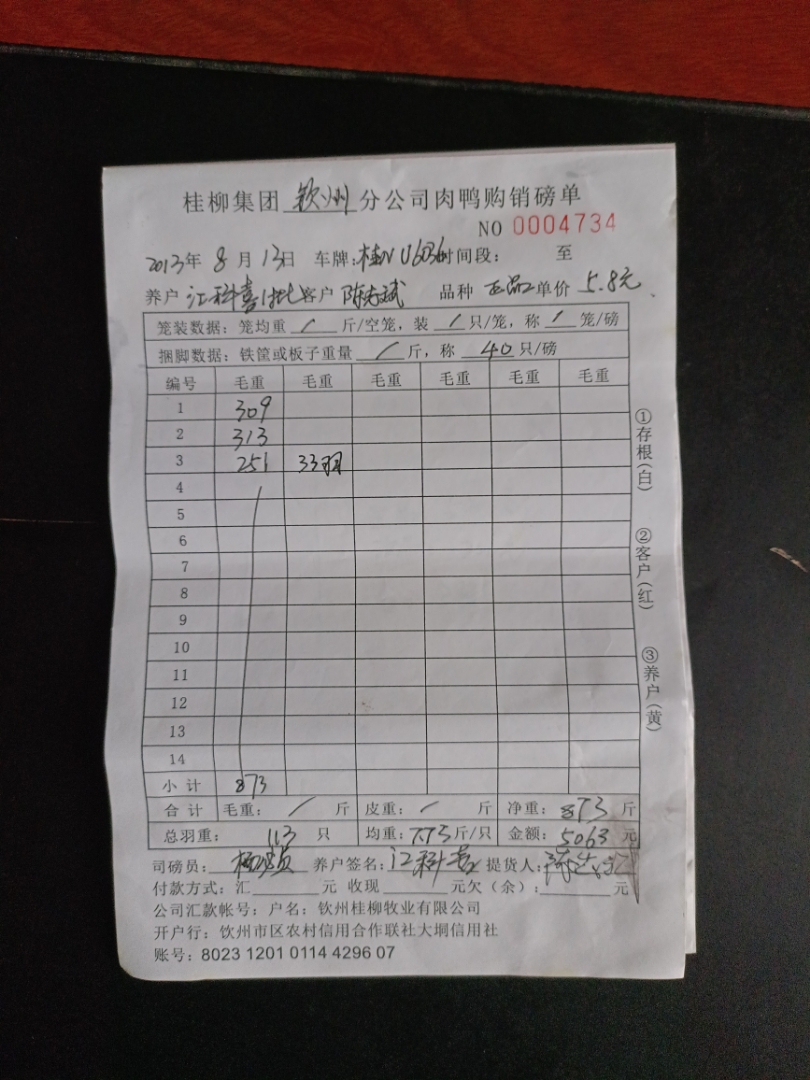 桂柳集团 钦州 分公司肉鸭购销磅单
NO 0004734
2013年 8月 13日 车牌:桂N U6036 时间段: 至
养户 江科喜 客户 陈志斌 品种 正品 单价 5.8元
笼装数据: 笼均重 / 斤/空笼, 装 / 只/笼, 称 / 笼/磅
捆脚数据: 铁筐或板子重量 / 斤, 称 40 只/磅
编号 毛重 毛重 毛重 毛重 毛重 毛重
1 309
2 313
3 251 33羽
4
5
6
7
8
9
10
11
12
13
14
小计 873
合计 毛重: / 斤 皮重: / 斤 净重: 873 斤
总羽重: 113 只 均重: 7.73 斤/只 金额: 5063 元
司磅员: 养户签名: 江科喜 提货人:
付款方式: 汇 元 收现 元欠(余): 元
公司汇款帐号: 户名: 钦州桂柳牧业有限公司
开户行: 钦州市区农村信用合作联社大垌信用社
账号: 8023 1201 0114 4296 07
①存根(白)
②客户(红)
③养户(黄)